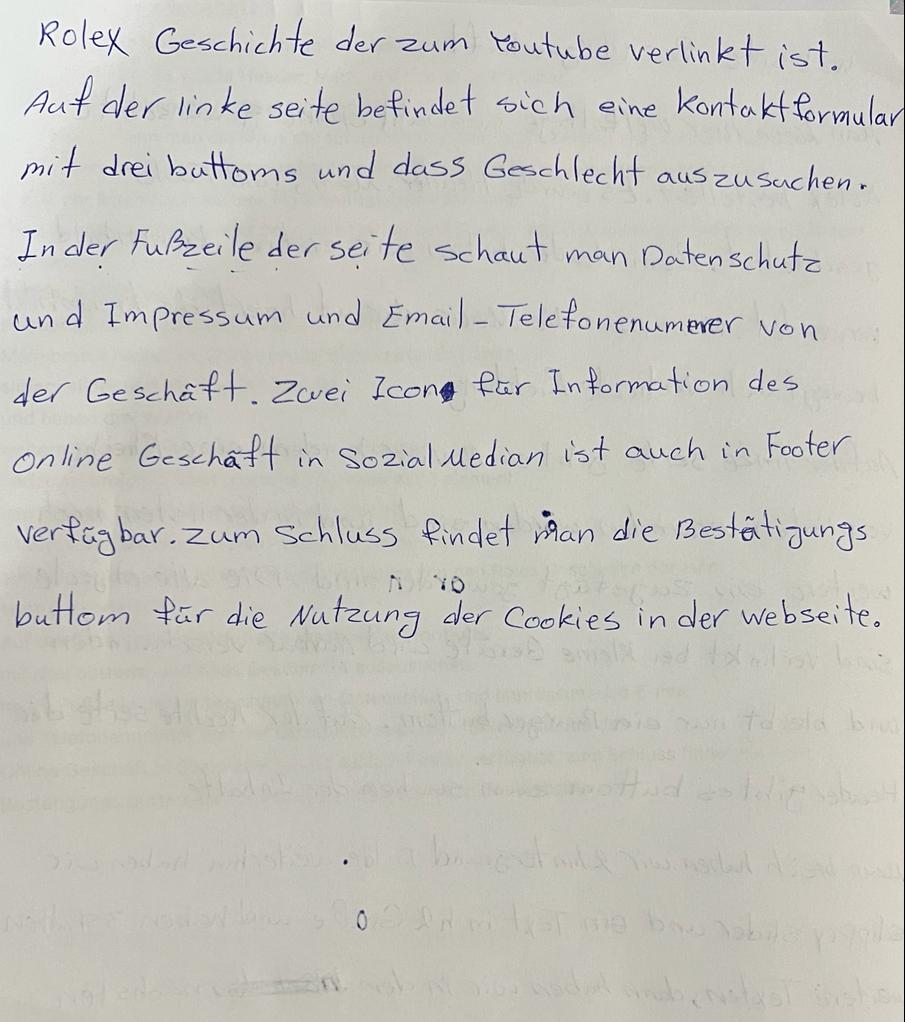 Rolex Geschichte der zum Youtube verlinkt ist.
Auf der linke seite befindet sich eine Kontaktformular
mit drei buttoms und dass Geschlecht auszusuchen.
In der Fußzeile der seite schaut man Datenschutz
und Impressum und Email-Telefonenumerer von
der Geschäft. Zwei Icons für Information des
online Geschäft in Sozial Median ist auch in Footer
verfügbar. zum Schluss findet man die Bestätigungs
buttom für die Nutzung der Cookies in der webseite.